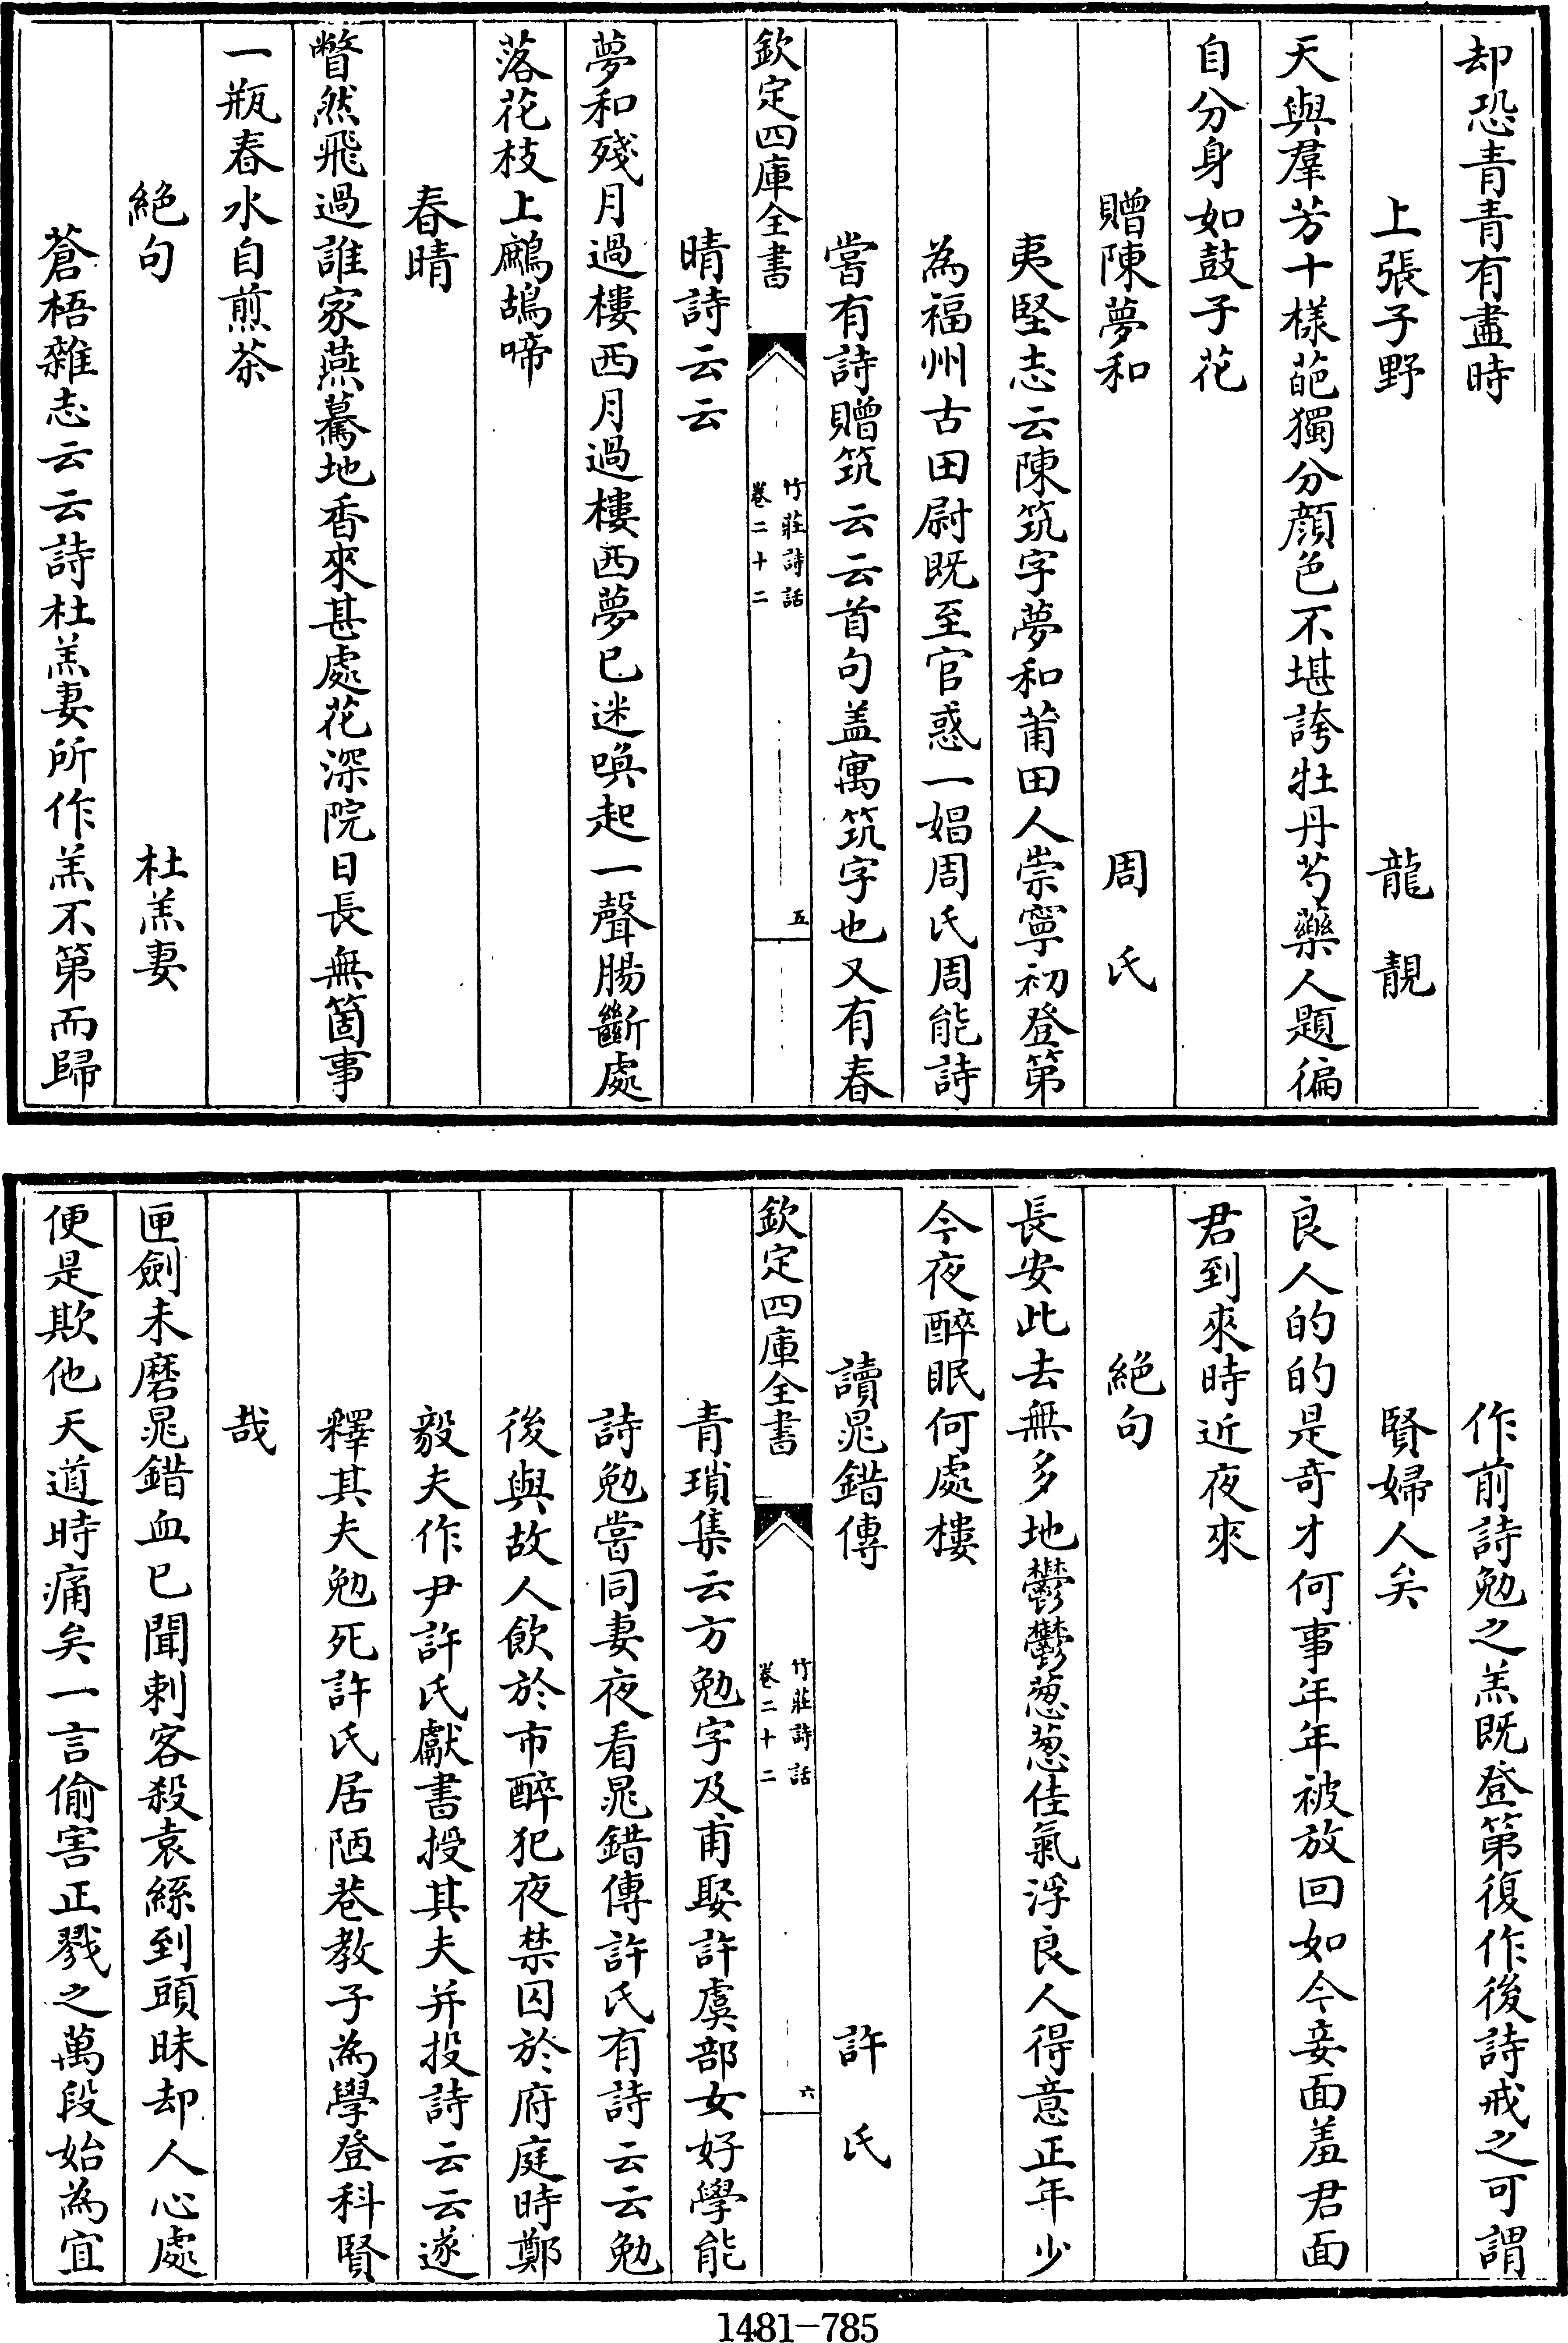 却恐青青有盡時
上張子野　龍靚
天與羣芳十樣葩獨分顔色不堪誇牡丹芍藥人題徧
自分身如鼓子花
贈陳夢和　周氏
夷堅志云陳筑字夢和莆田人崇寧初登第
為福州古田尉既至官惑一娼周氏周能詩
嘗有詩贈筑云云首句盖寓筑字也又有春
欽定四庫全書　竹莊詩話　卷二十二　五
晴詩云云
夢和殘月過樓西月過樓西夢已迷喚起一聲腸斷處
落花枝上鷓鴣啼
春晴
瞥然飛過誰家燕驀地香來甚處花深院日長無箇事
一瓶春水自煎茶
絶句　杜羔妻
蒼梧雜志云云詩杜羔妻所作羔不第而歸
作前詩勉之羔既登第復作後詩戒之可謂
賢婦人矣
良人的的是奇才何事年年被放回如今妾面羞君面
君到來時近夜來
絶句
長安此去無多地鬱鬱葱葱佳氣浮良人得意正年少
今夜醉眠何處樓
讀鼂錯傳　許氏
欽定四庫全書　竹莊詩話　卷二十二　六
青瑣集云方勉字及甫娶許虞部女好學能
詩勉嘗同妻夜看鼂錯傳許氏有詩云云勉
後與故人飲於市醉犯夜禁囚於府庭時鄭
毅夫作尹許氏獻書授其夫并投詩云云遂
釋其夫勉死許氏居陋巷教子為學登科賢
哉
匣劍未磨鼂錯血已聞刺客殺袁絲到頭昧却人心處
便是欺他天道時痛矣一言偷害正戮之萬段始為宜
1481-785